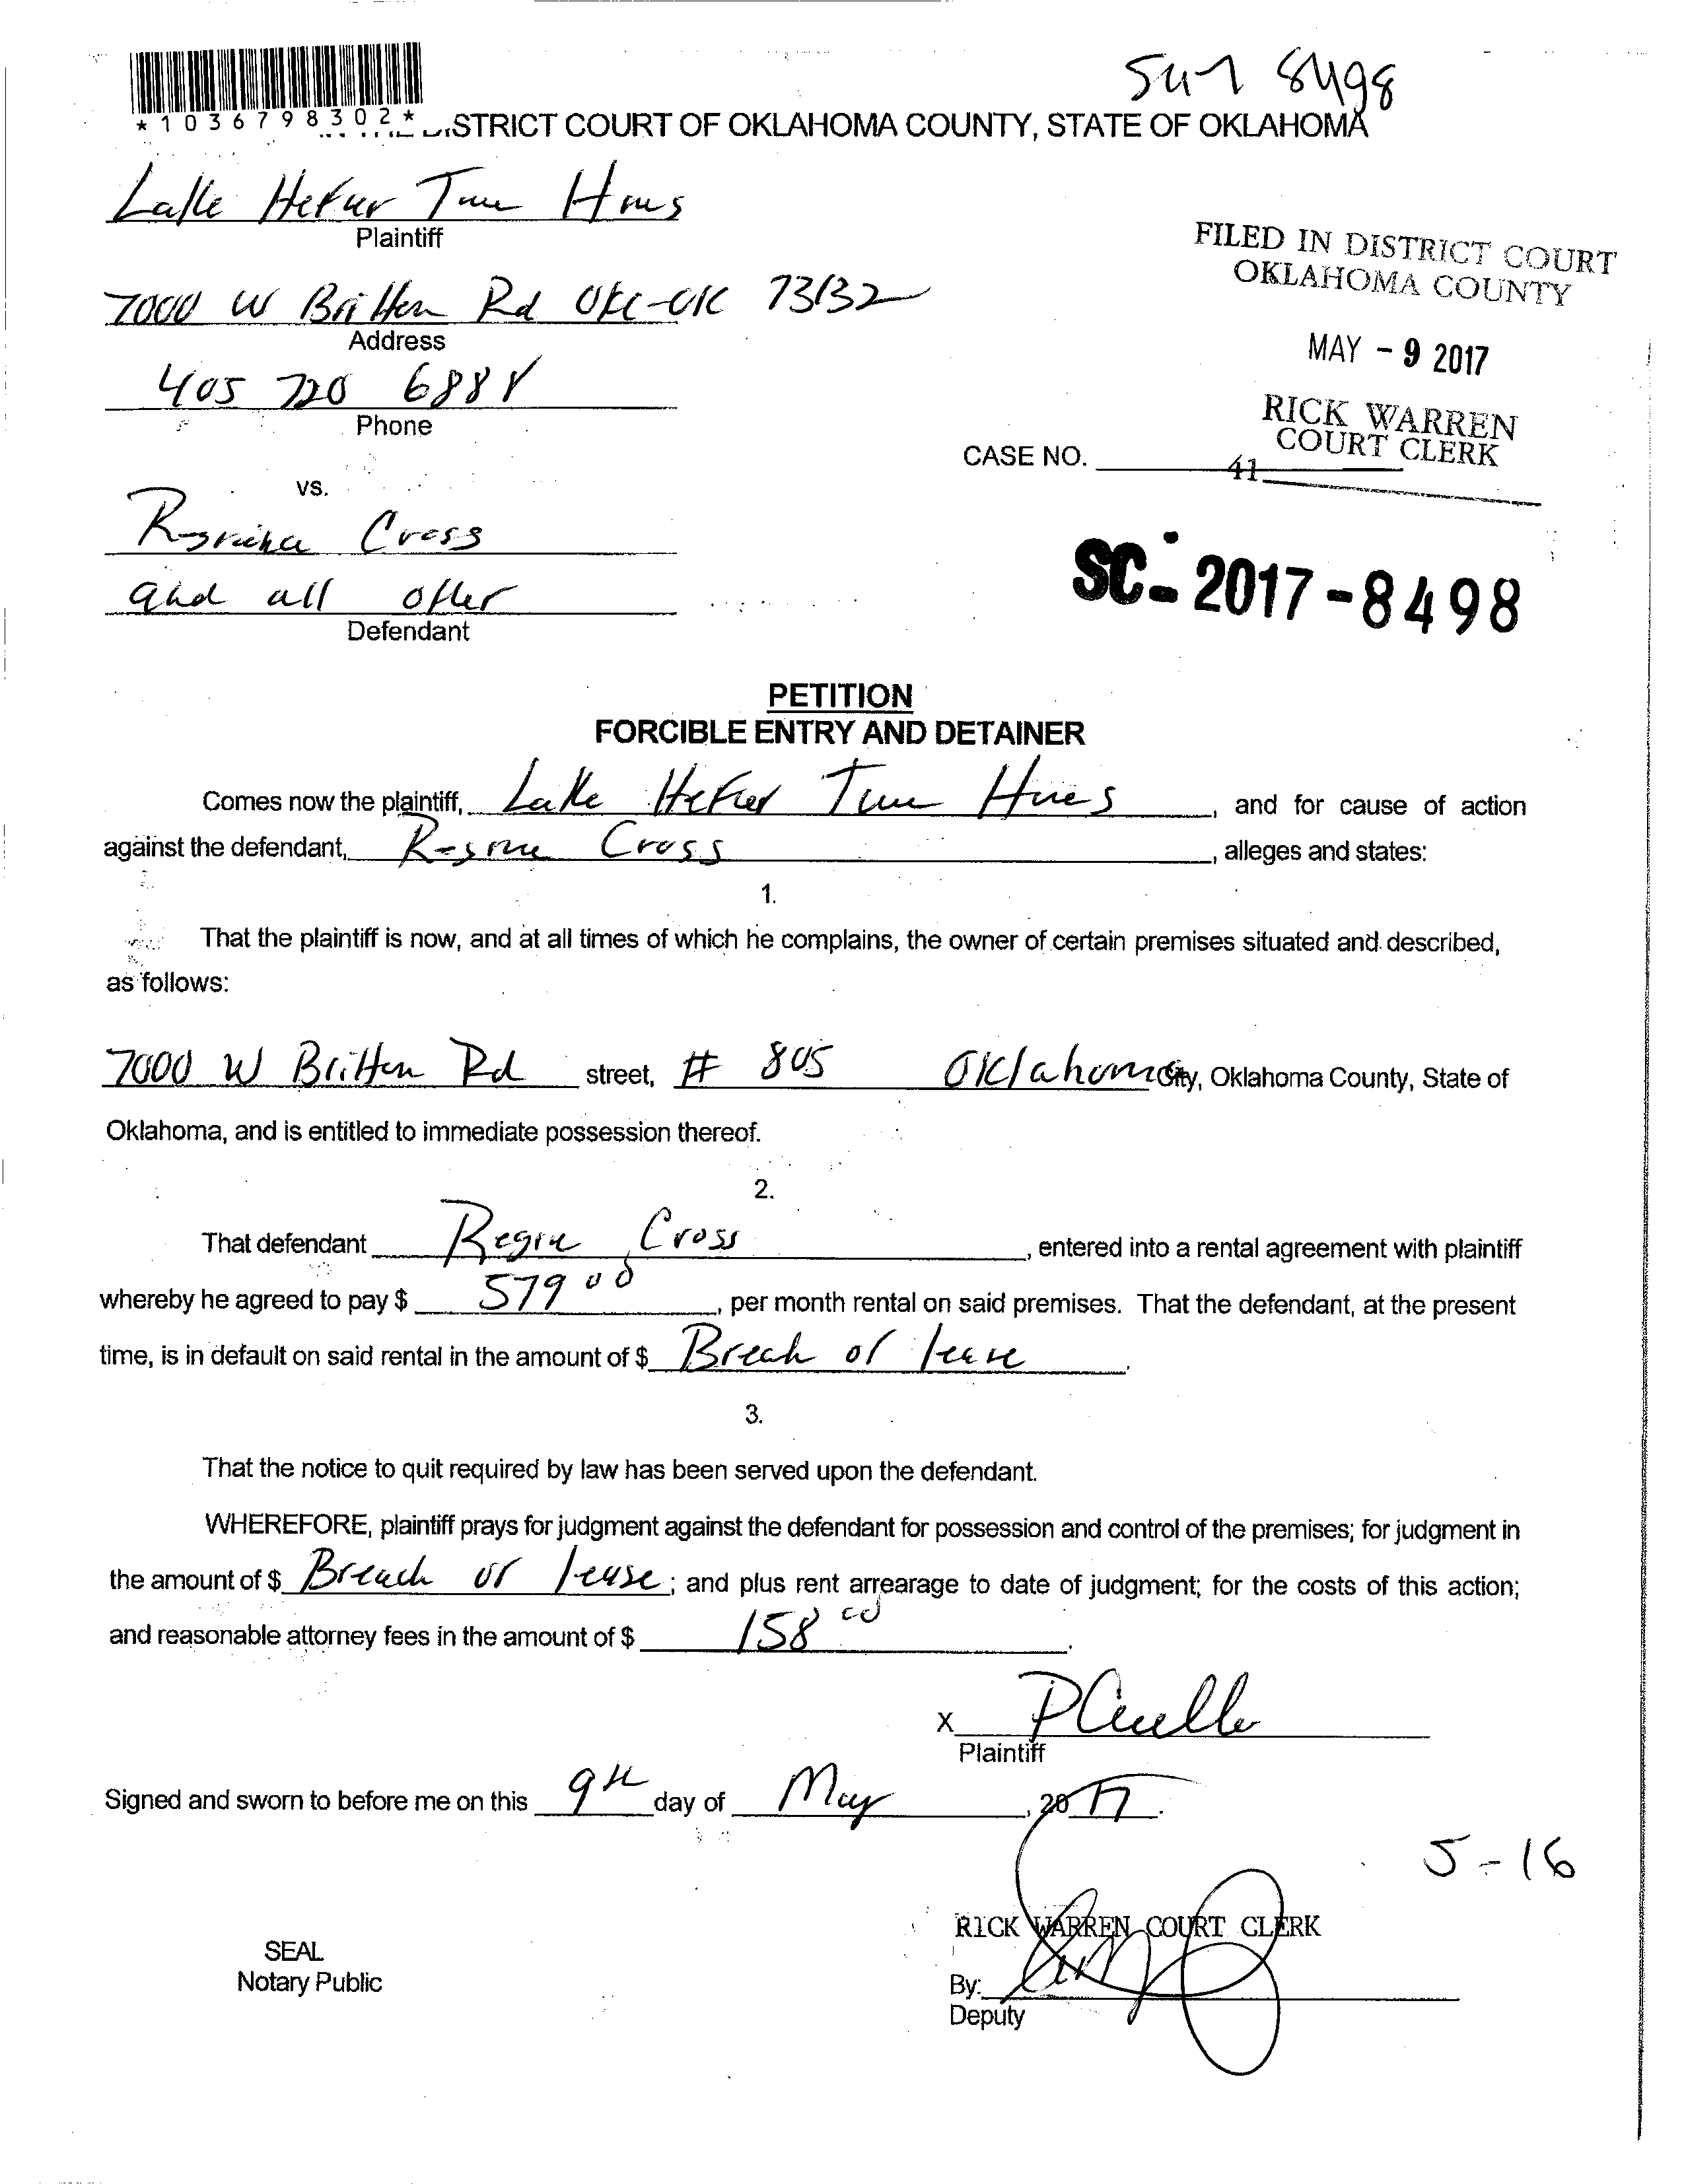 *1036798302*
STRICT COURT OF OKLAHOMA COUNTY, STATE OF OKLAHOMA
8498
Plaintiff
7000 W Britton Rd OKC-OK 73132
Address
405 720 688
Phone
FILED IN DISTRICT COURT
OKLAHOMA COUNTY
MAY - 9 2017
RICK WARREN
COURT CLERK
CASE NO.
41
vs.
Cross
and all other
Defendant
SC-2017-8498
PETITION
FORCIBLE ENTRY AND DETAINER
Comes now the plaintiff, Lake Hefner, and for cause of action
against the defendant, Cross, alleges and states:
1.
That the plaintiff is now, and at all times of which he complains, the owner of certain premises situated and described,
as follows:
7000 W Britton Rd street, # 805 Oklahoma City, Oklahoma County, State of
Oklahoma, and is entitled to immediate possession thereof.
2.
That defendant Cross, entered into a rental agreement with plaintiff
whereby he agreed to pay $ 579 00, per month rental on said premises. That the defendant, at the present
time, is in default on said rental in the amount of $ Breach of lease.
3.
That the notice to quit required by law has been served upon the defendant.
WHEREFORE, plaintiff prays for judgment against the defendant for possession and control of the premises; for judgment in
the amount of $ Breach of lease; and plus rent arrearage to date of judgment; for the costs of this action;
and reasonable attorney fees in the amount of $ 158 00.
X
Plaintiff
Signed and sworn to before me on this 9th day of May, 2017.
5-16
RICK WARREN COURT CLERK
SEAL
Notary Public
By:
Deputy